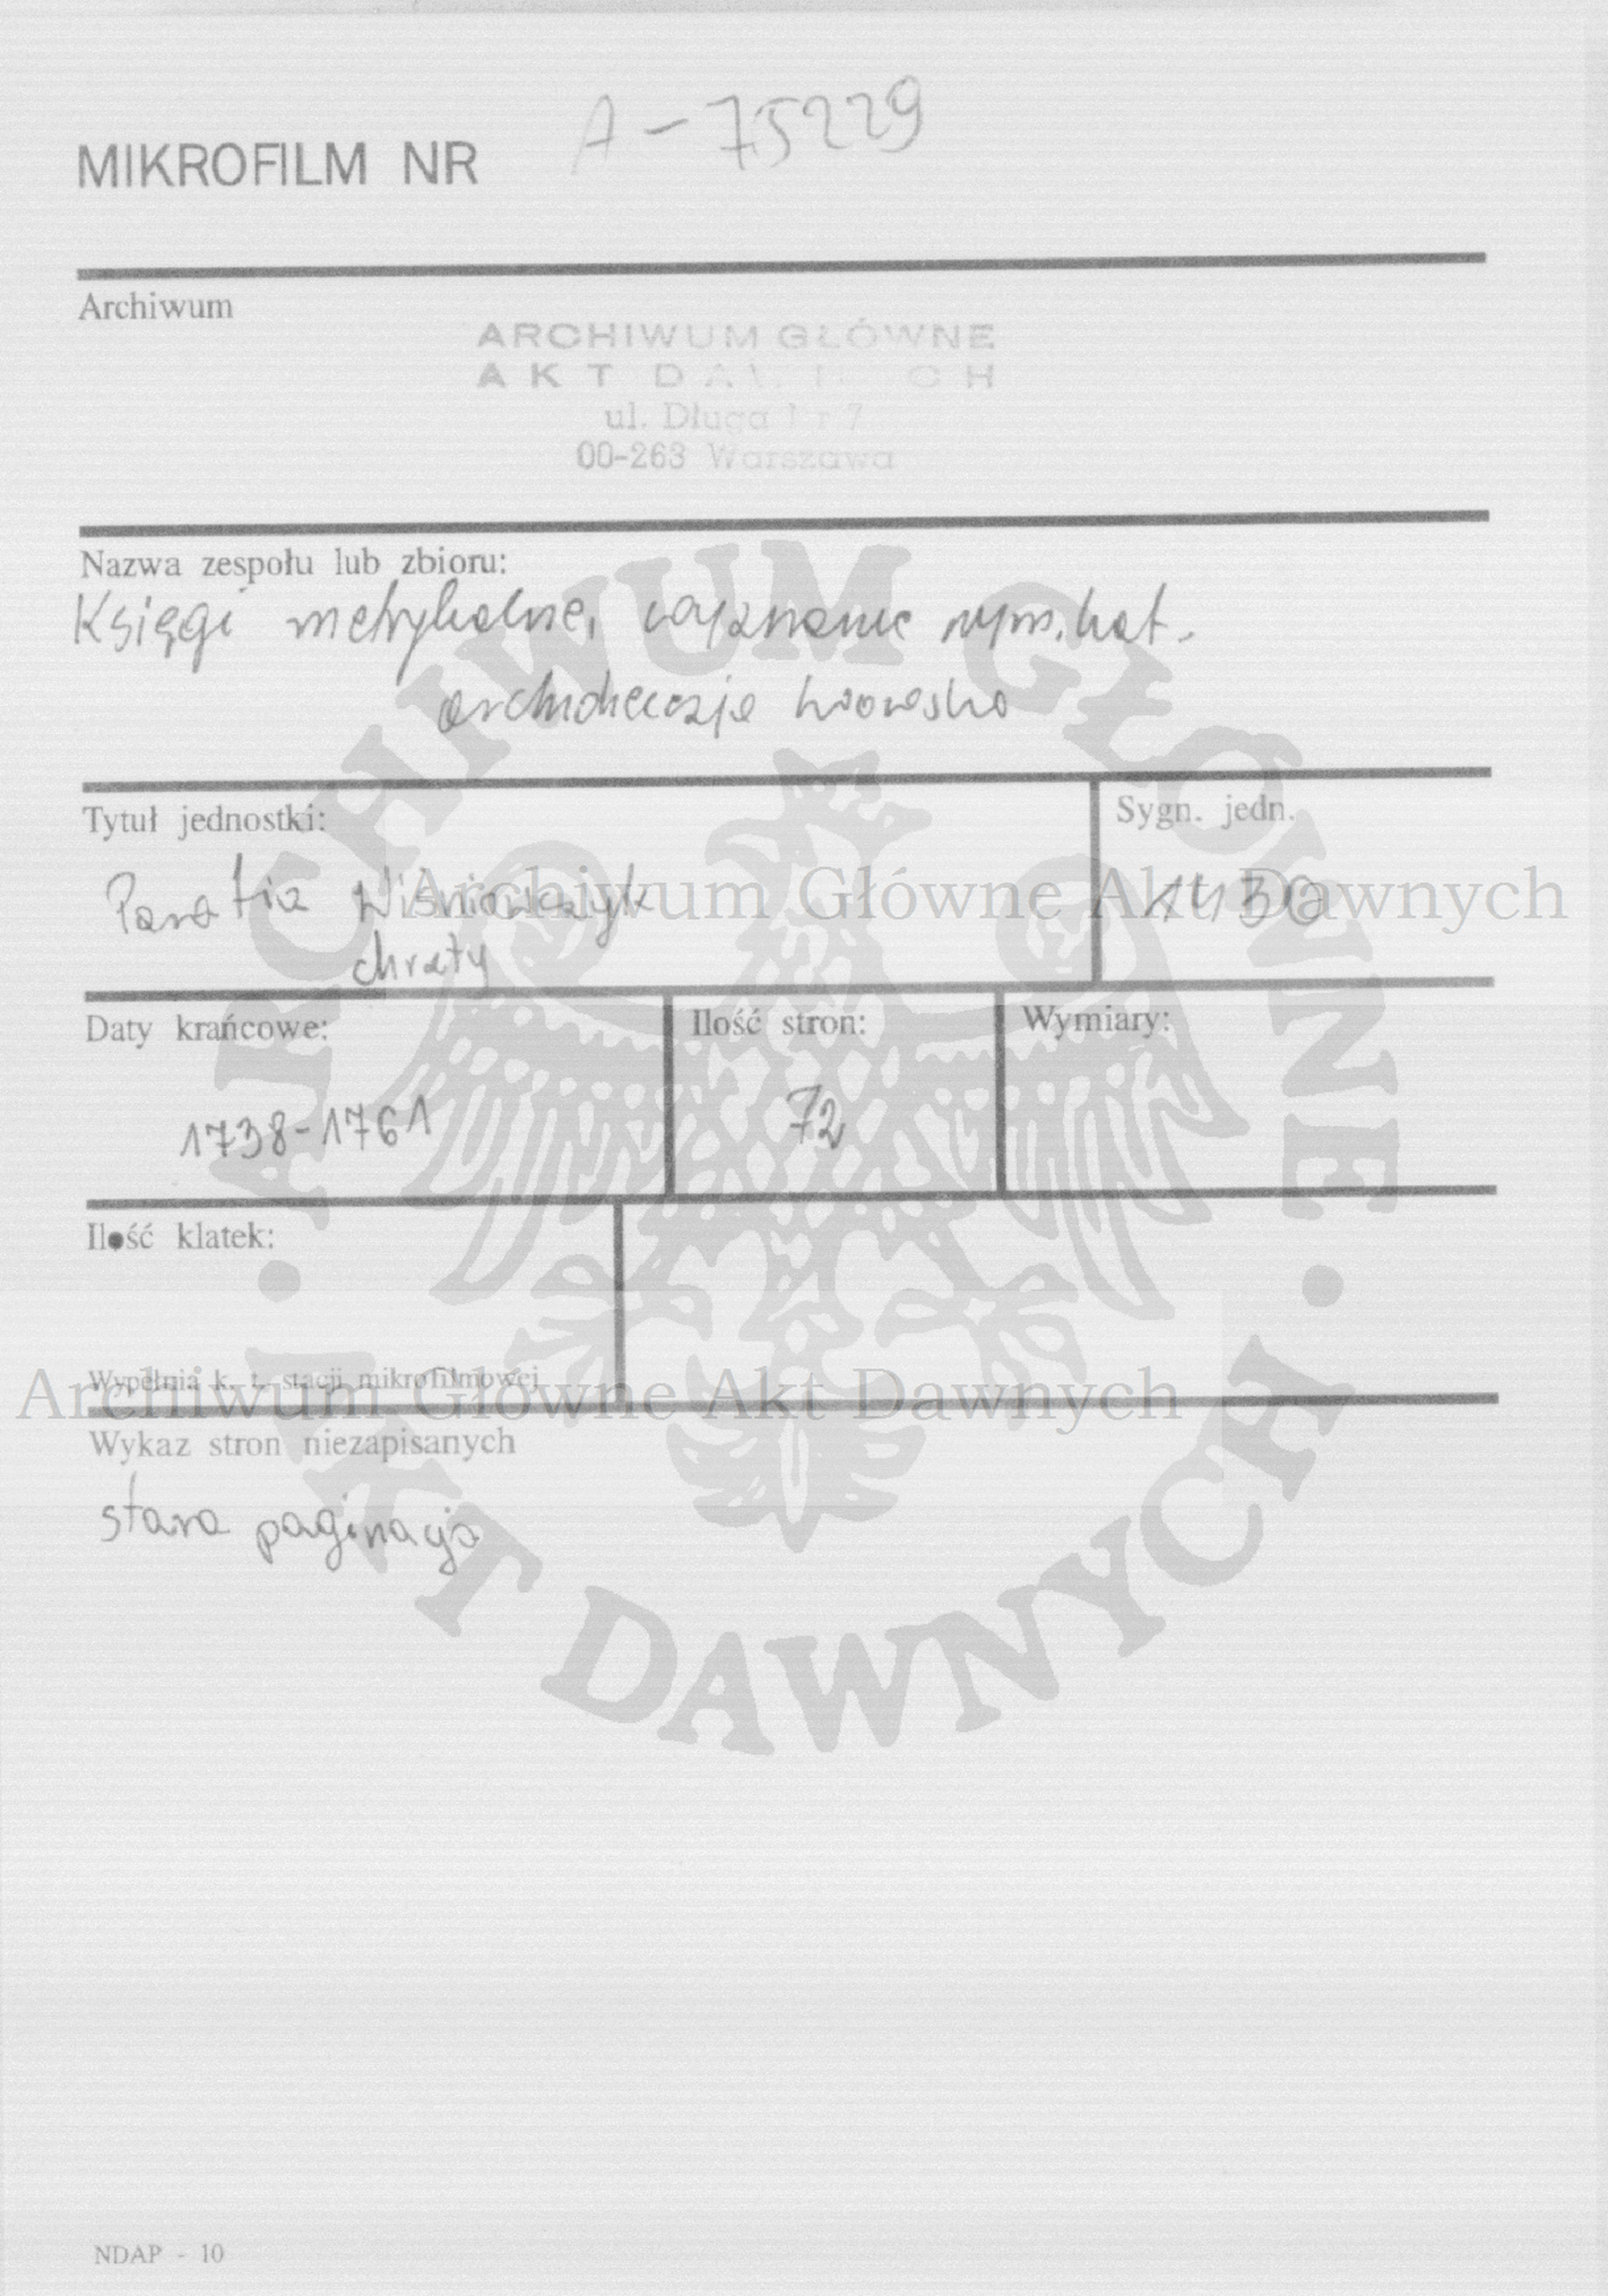 A-75229
MIKROFILM NR
Archiwum
ARCHIWUM GŁÓWNE
AKT DAWNYCH
ul. Długa Nr 7
00-263 Warszawa
Nazwa zespołu lub zbioru:
Księgi metrykalne, wyznanie rzym.kat.
archidiecezja lwowska
Tytuł jednostki:
Sygn. jedn.
Parafia Wiśniowczyk
chrzty
1430
Archiwum Główne Akt Dawnych
Daty krańcowe:
Ilość stron:
Wymiary:
1738-1761
72
Ilość klatek:
Wypełnia k. t. stacji mikrofilmowej
Archiwum Główne Akt Dawnych
Wykaz stron niezapisanych
stara paginacja
ARCHIWUM GŁÓWNE
AKT DAWNYCH
NDAP - 10